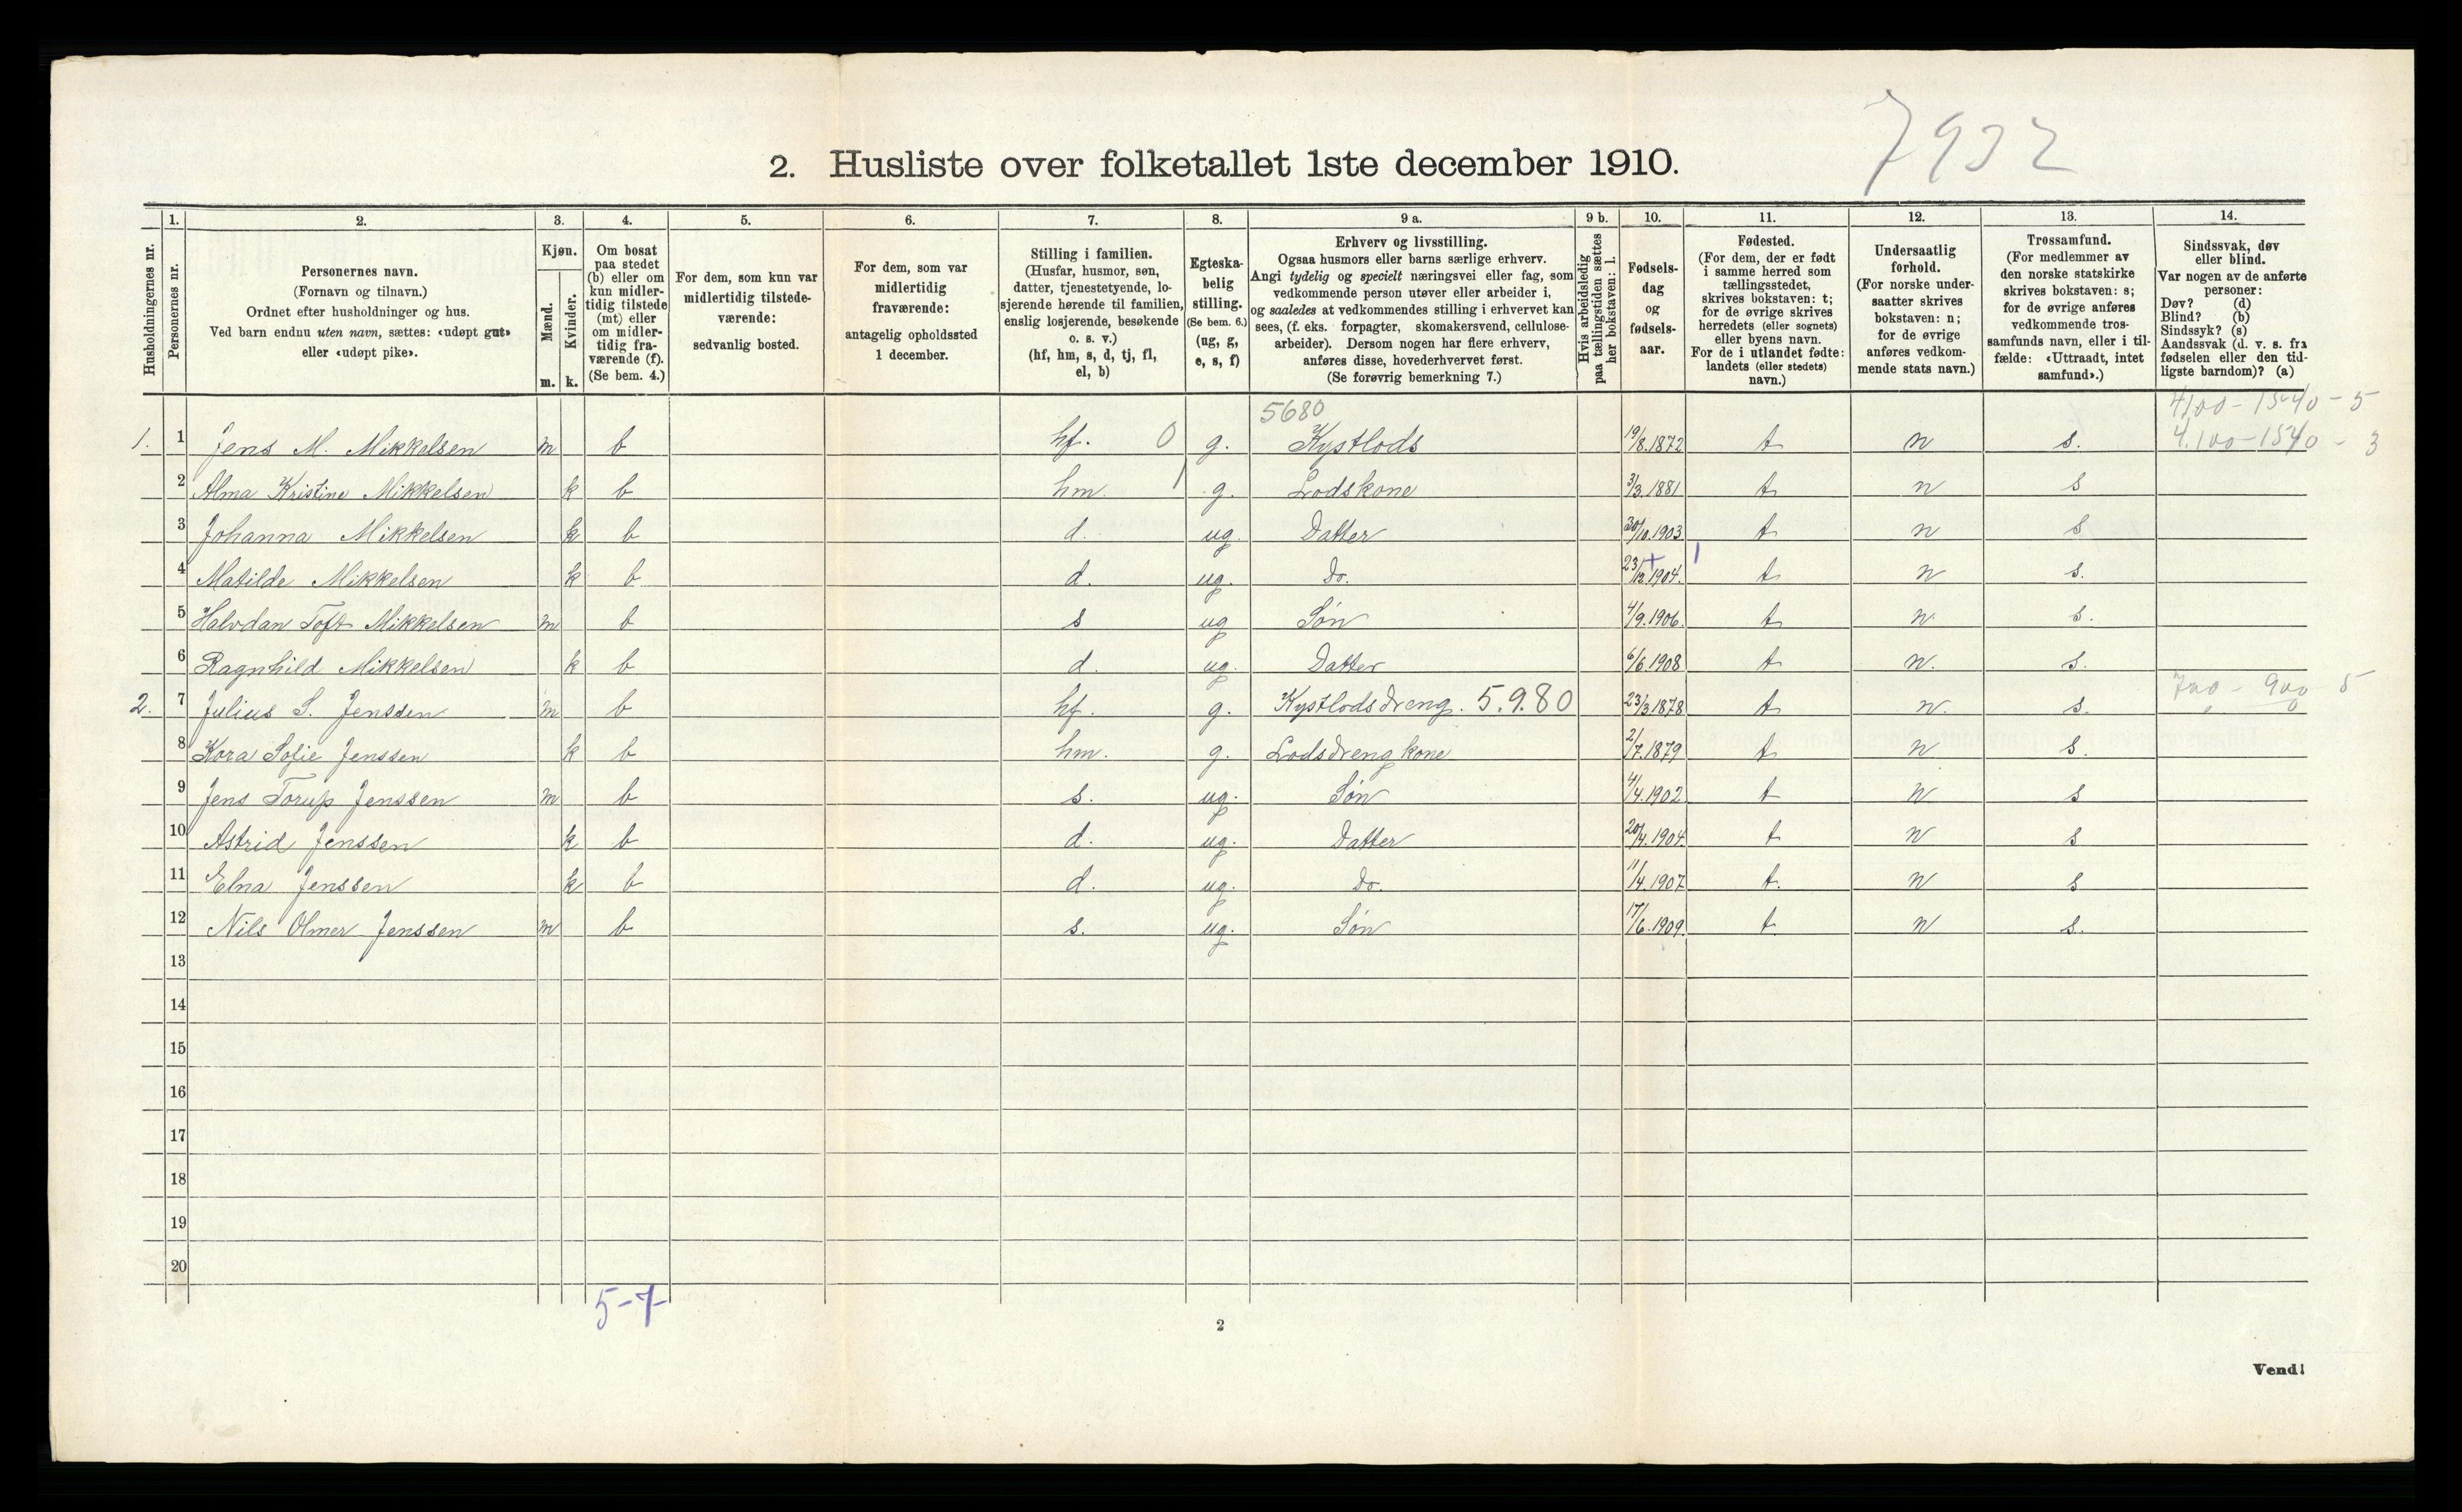 7932
2. Husliste over folketallet 1ste december 1910.
Husholdningernes nr.
1. Personernes nr.
2. Personernes navn.
(Fornavn og tilnavn.)
Ordnet efter husholdninger og hus.
Ved barn endnu uten navn, sættes: «udøpt gut»
eller «udøpt pike».
3. Kjøn.
Mænd. m.
Kvinder. k.
4. Om bosat
paa stedet
(b) eller om
kun midler-
tidig tilstede
(mt) eller
om midler-
tidig fra-
værende (f).
(Se bem. 4.)
5. For dem, som kun var
midlertidig tilstede-
værende:
sedvanlig bosted.
6. For dem, som var
midlertidig
fraværende:
antagelig opholdssted
1 december.
7. Stilling i familien.
(Husfar, husmor, søn,
datter, tjenestetyende, lo-
sjerende hørende til familien,
enslig losjerende, besøkende
o. s. v.)
(hf, hm, s, d, tj, fl,
el, b)
8. Egteska-
belig
stilling.
(Se bem. 6.)
(ug, g,
e, s, f)
9 a. Erhverv og livsstilling.
Ogsaa husmors eller barns særlige erhverv.
Angi tydelig og specielt næringsvei eller fag, som
vedkommende person utøver eller arbeider i,
og saaledes at vedkommendes stilling i erhvervet kan
sees, (f. eks. forpagter, skomakersvend, cellulose-
arbeider). Dersom nogen har flere erhverv,
anføres disse, hovederhvervet først.
(Se forøvrig bemerkning 7.)
9 b. Hvis arbeidsledig
paa tællingstiden sættes
her bokstaven: l.
10. Fødsels-
dag
og
fødsels-
aar.
11. Fødested.
(For dem, der er født
i samme herred som
tællingsstedet,
skrives bokstaven: t;
for de øvrige skrives
herredets (eller sognets)
eller byens navn.
For de i utlandet fødte:
landets (eller stedets)
navn.)
12. Undersaatlig
forhold.
(For norske under-
saatter skrives
bokstaven: n;
for de øvrige
anføres vedkom-
mende stats navn.)
13. Trossamfund.
(For medlemmer av
den norske statskirke
skrives bokstaven: s;
for de øvrige anføres
vedkommende tros-
samfunds navn, eller i til-
fælde: «Uttraadt, intet
samfund».)
14. Sindssvak, døv
eller blind.
Var nogen av de anførte
personer:
Døv? (d)
Blind? (b)
Sindssyk? (s)
Aandssvak (d. v. s. fra
fødselen eller den tid-
ligste barndom)? (a)
5680 4100 - 1540 - 5
1. 1 Jens M. Mikkelsen m b hf. 0 g. Kystlods 19/8.1872 t n s. 4.100 - 1540 - 3
2 Alma Kristine Mikkelsen k b hm. 1 g. Lodskone 3/3.1881 t n s
3 Johanna Mikkelsen k b d. ug. Datter 30/10.1903 t n s
4 Matilde Mikkelsen k b d. ug. Do. 23/12.1904. t n s.
5 Halvdan Toft Mikkelsen m b s ug Søn 4/9.1906. t n. s.
6 Ragnhild Mikkelsen k b d. ug. Datter 6/6.1908 t n. s.
2. 7 Julius S. Jenssen m b hf. g. Kystlodsdreng. 5.9.80 23/3.1878 t n. s. 700 - 900 5
8 Kora Sofie Jenssen k b hm. g. Lodsdrengkone 2/7.1879 t n s.
9 Jens Torup Jenssen m b s. ug. Søn 4/4.1902 t n s
10 Astrid Jenssen k b d. ug. Datter 20/4.1904. t n s
11 Elna Jenssen k b d. ug. Do. 11/4.1907 t. n s
12 Nils Olmer Jenssen m b s. ug. Søn 17/6.1909. t. n s.
13
14
15
16
17
18
19
20
5-7-
2
Vend!